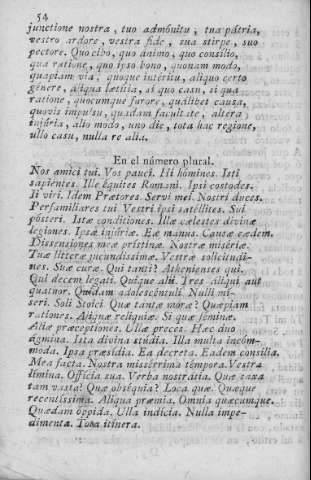 54
junctione nostra, tuo admónitu, tua pátria,
vestro ardore, vestra fide, sua stirpe, suo
pectore. Quo cibo, quo ánimo, quo consilio,
qua ratione, quo ipso bono, quonam modo,
quapiam via, quoque intéritu, aliquo certo
génere, áliqua lætitia, si quo casu, si qua
ratione, quocumque furore, quálibet causa,
quovis impulsu, quadam facultate, altera
injúria, alio modo, uno die, tota hac regione,
ullo casu, nulla re alia.
En el número plural.
Nos amici tui. Vos pauci. Hi hómines. Isti
sapientes. Illi équites Romani. Ipsi custodes.
Ii viri. Idem Prætores. Servi mei. Nostri duces.
Perfamiliares tui. Vestri ipsi satéllites. Sui
pósteri. Istæ conditiones. Illæ cælestes divinæ
legiones. Ipsæ injúriæ. Eæ manus. Cautæ eædem.
Dissensiones meæ prístinæ. Nostræ misériæ.
Tuæ litteræ jucundíssimæ. Vestræ solicitúdi-
nes. Suæ curæ. Qui tanti? Athenienses qui.
Qui decem legati. Quique alii. Tres áliqui aut
quatuor. Quidam adolescéntuli. Nulli mí-
seri. Soli Stoici. Quæ tantæ moræ? Quæpiam
rationes. Aliquæ relíquiæ. Si quæ féminæ.
Aliæ præceptiones. Ullæ preces. Hæc duo
ágmina. Ista divina studia. Illa multa incóm-
moda. Ipsa præsidia. Ea decreta. Eadem consilia.
Mea facta. Nostra misérrima témpora. Vestra
límina. Officia sua. Verba nostrátia. Quæ saxa
tam vasta? Quæ obséquia? Loca quæ. Quæque
recentíssima. Aliqua præmia. Omnia quæcumque.
Quædam óppida. Ulla indícia. Nulla impe-
dimenta. Tota itínera.